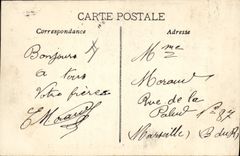 CARTE POSTALE
Correspondance
Adresse
Bonjours
à tous
Votre frère
E Morard
Mme
Morard
Rue de la
Palud No 87
Marseille (B du R)